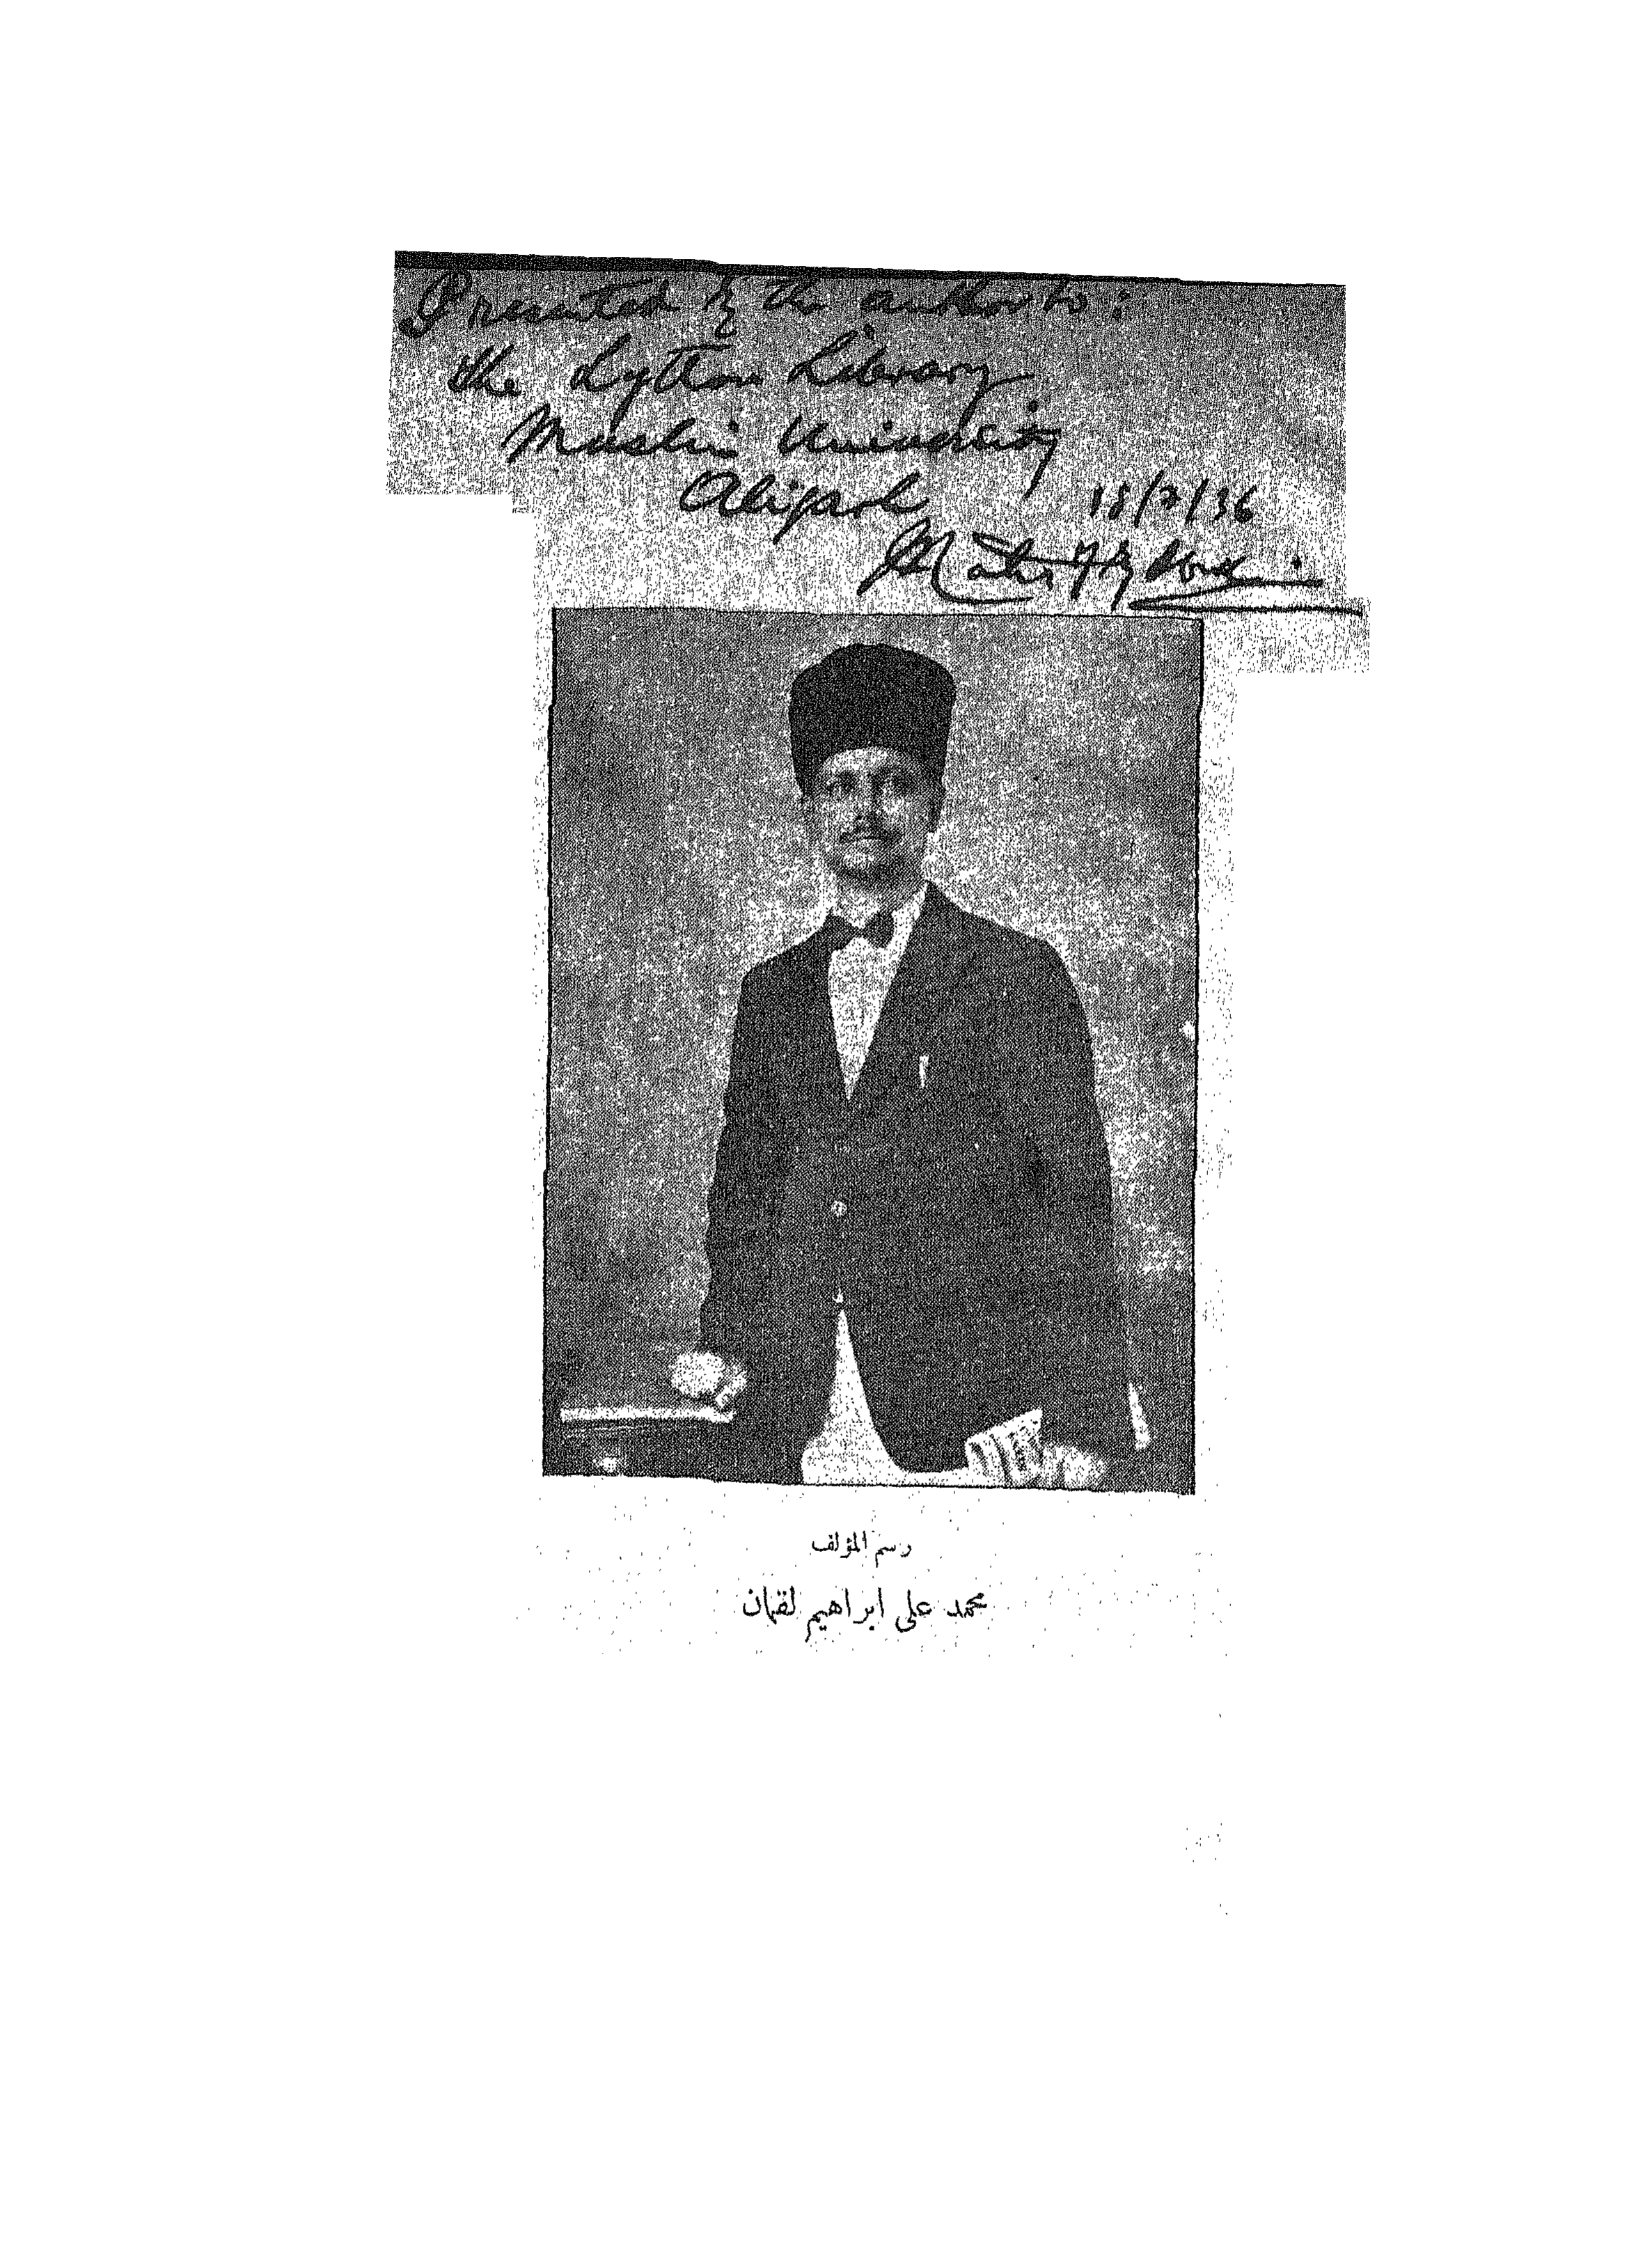 Presented by the author to:
the Lytton Library
Muslim University
Aligarh
18/7/36
رسم المؤلف
محمد على ابراهيم لقمان